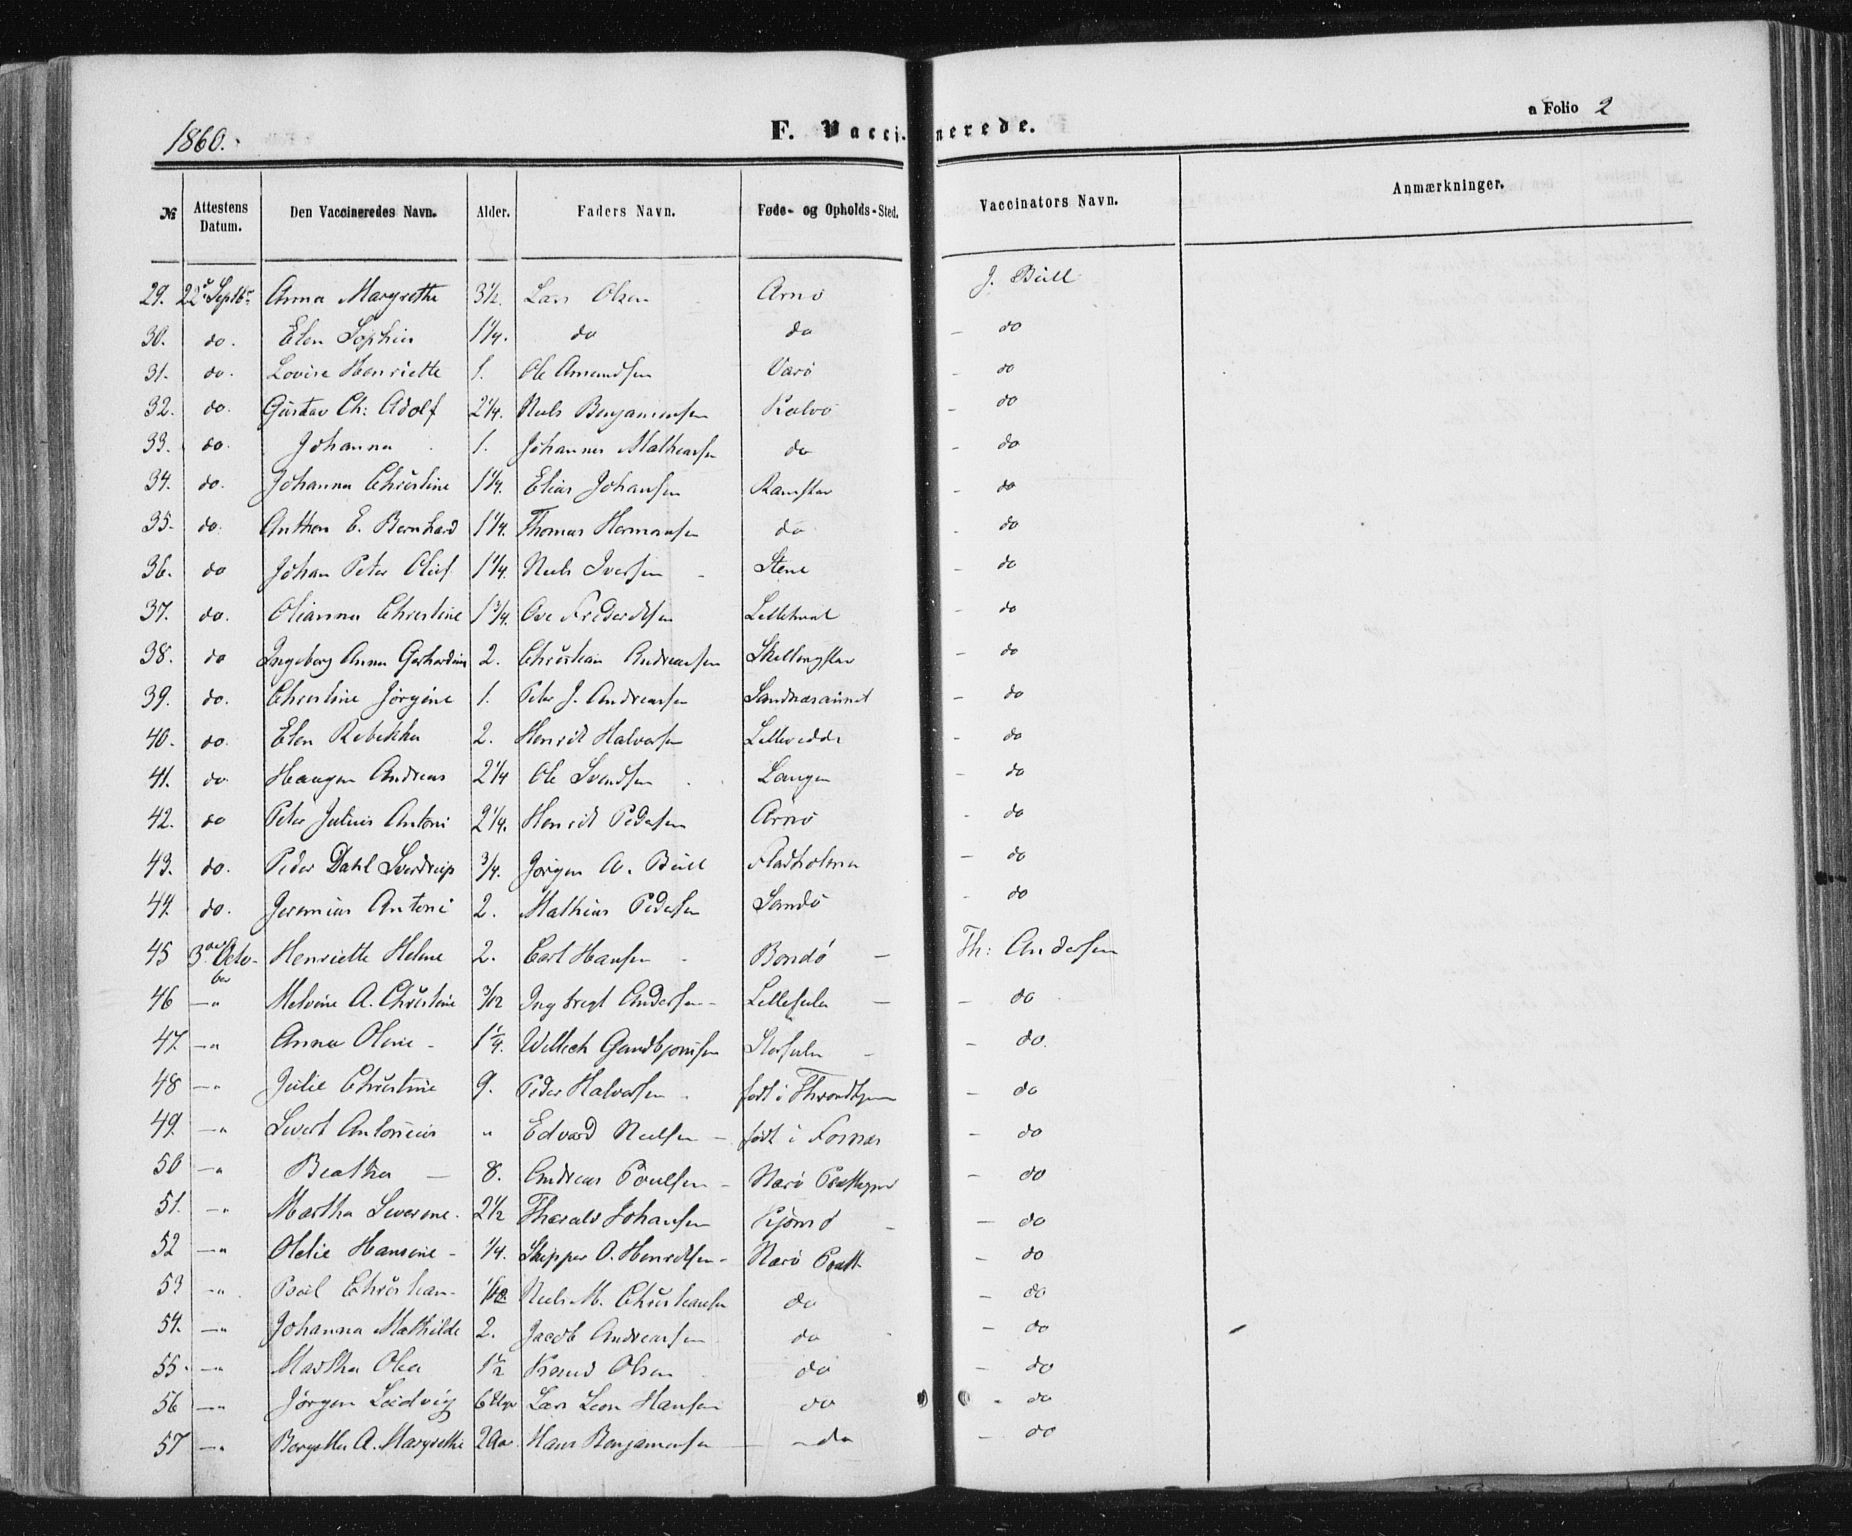 1860.
F. Vacci- nerede.
a Folio 2
№ Attestens Datum. Den Vaccineredes Navn. Alder. Faders Navn. Føde- og Opholds-Sted. Vaccinators Navn. Anmærkninger.
29. 22de Septbr Anna Margrethe 3½. Lars Olsen Arnø J. Büll
30. do. Elen Sophie 1¼. do do - do
31. do. Lovise Henriette 1. Ole Amundsen Varø - do
32. do. Gustav Ch: Adolf 2¼. Niels Benjaminsen Kalvø - do
33. do. Johanna 1. Johannes Matheasen do - do
34. do. Johanna Christine 1¼. Elias Johansen Ramstav - do
35. do. Anthon E. Bernhard 1¼. Thomas Hermansen do - do
36. do Johan Peter Oluf 1¼. Niels Iversen Stene - do
37. do. Olianna Christine 1¾. Ove Fredriksen - do
38. do Ingeborg Anna Gerhardine 2. Christian Andreassen - do
39. do. Christine Jørgine 1. Peter J. Andreassen Sandnæsaunet - do
40. do. Elen Rebekka 2. Henrik Halvorsen - do
41. do Haagen Andreas 2¼ Ole Svendsen Langen - do
42. do Peter Julius Antoni 2¼. Henrik Pedersen Arnø - do
43. do. Peder Dahl Sverdrup ¾. Jørgen A. Büll Fladholmen - do
44. do. Jeremias Antoni 2. Mathias Pedersen Sandø - do
45 3die October Henriette Helene 2. Carl Hansen Bondø - Th: Andersen
46 -" Melvine A. Christine 3/12 Ingbregt Andersen - - do
47. -" Anna Oline - 1¼. - do.
48 -" Julie Christine 9. Peder Halvorsen født i Throndhjem - do
49. -" Sivert Antonius " Edvard Nielsen - født i Fosnæs - do
50 -" Beatha - 8. Andreas Poulsen - Nærø - do
51. -" Martha Severine. 2½ Johansen - do
52 -" Olelie Hansine - ¼. Skipper O. Henriksen - Nærø Præst - do
53 -" Poul Christian - Niels M. Christiansen do - do
54. -" Johanna Mathilde 2. Jacob Andreassen do - do
55. -" Martha Olea 1½ Olsen do - do
56 -" Jørgen Ludvig 6 Uger Lars Leon Hansen do - do
57 -" A. Margrethe 2 Aar. Hans Benjaminsen - - do - do